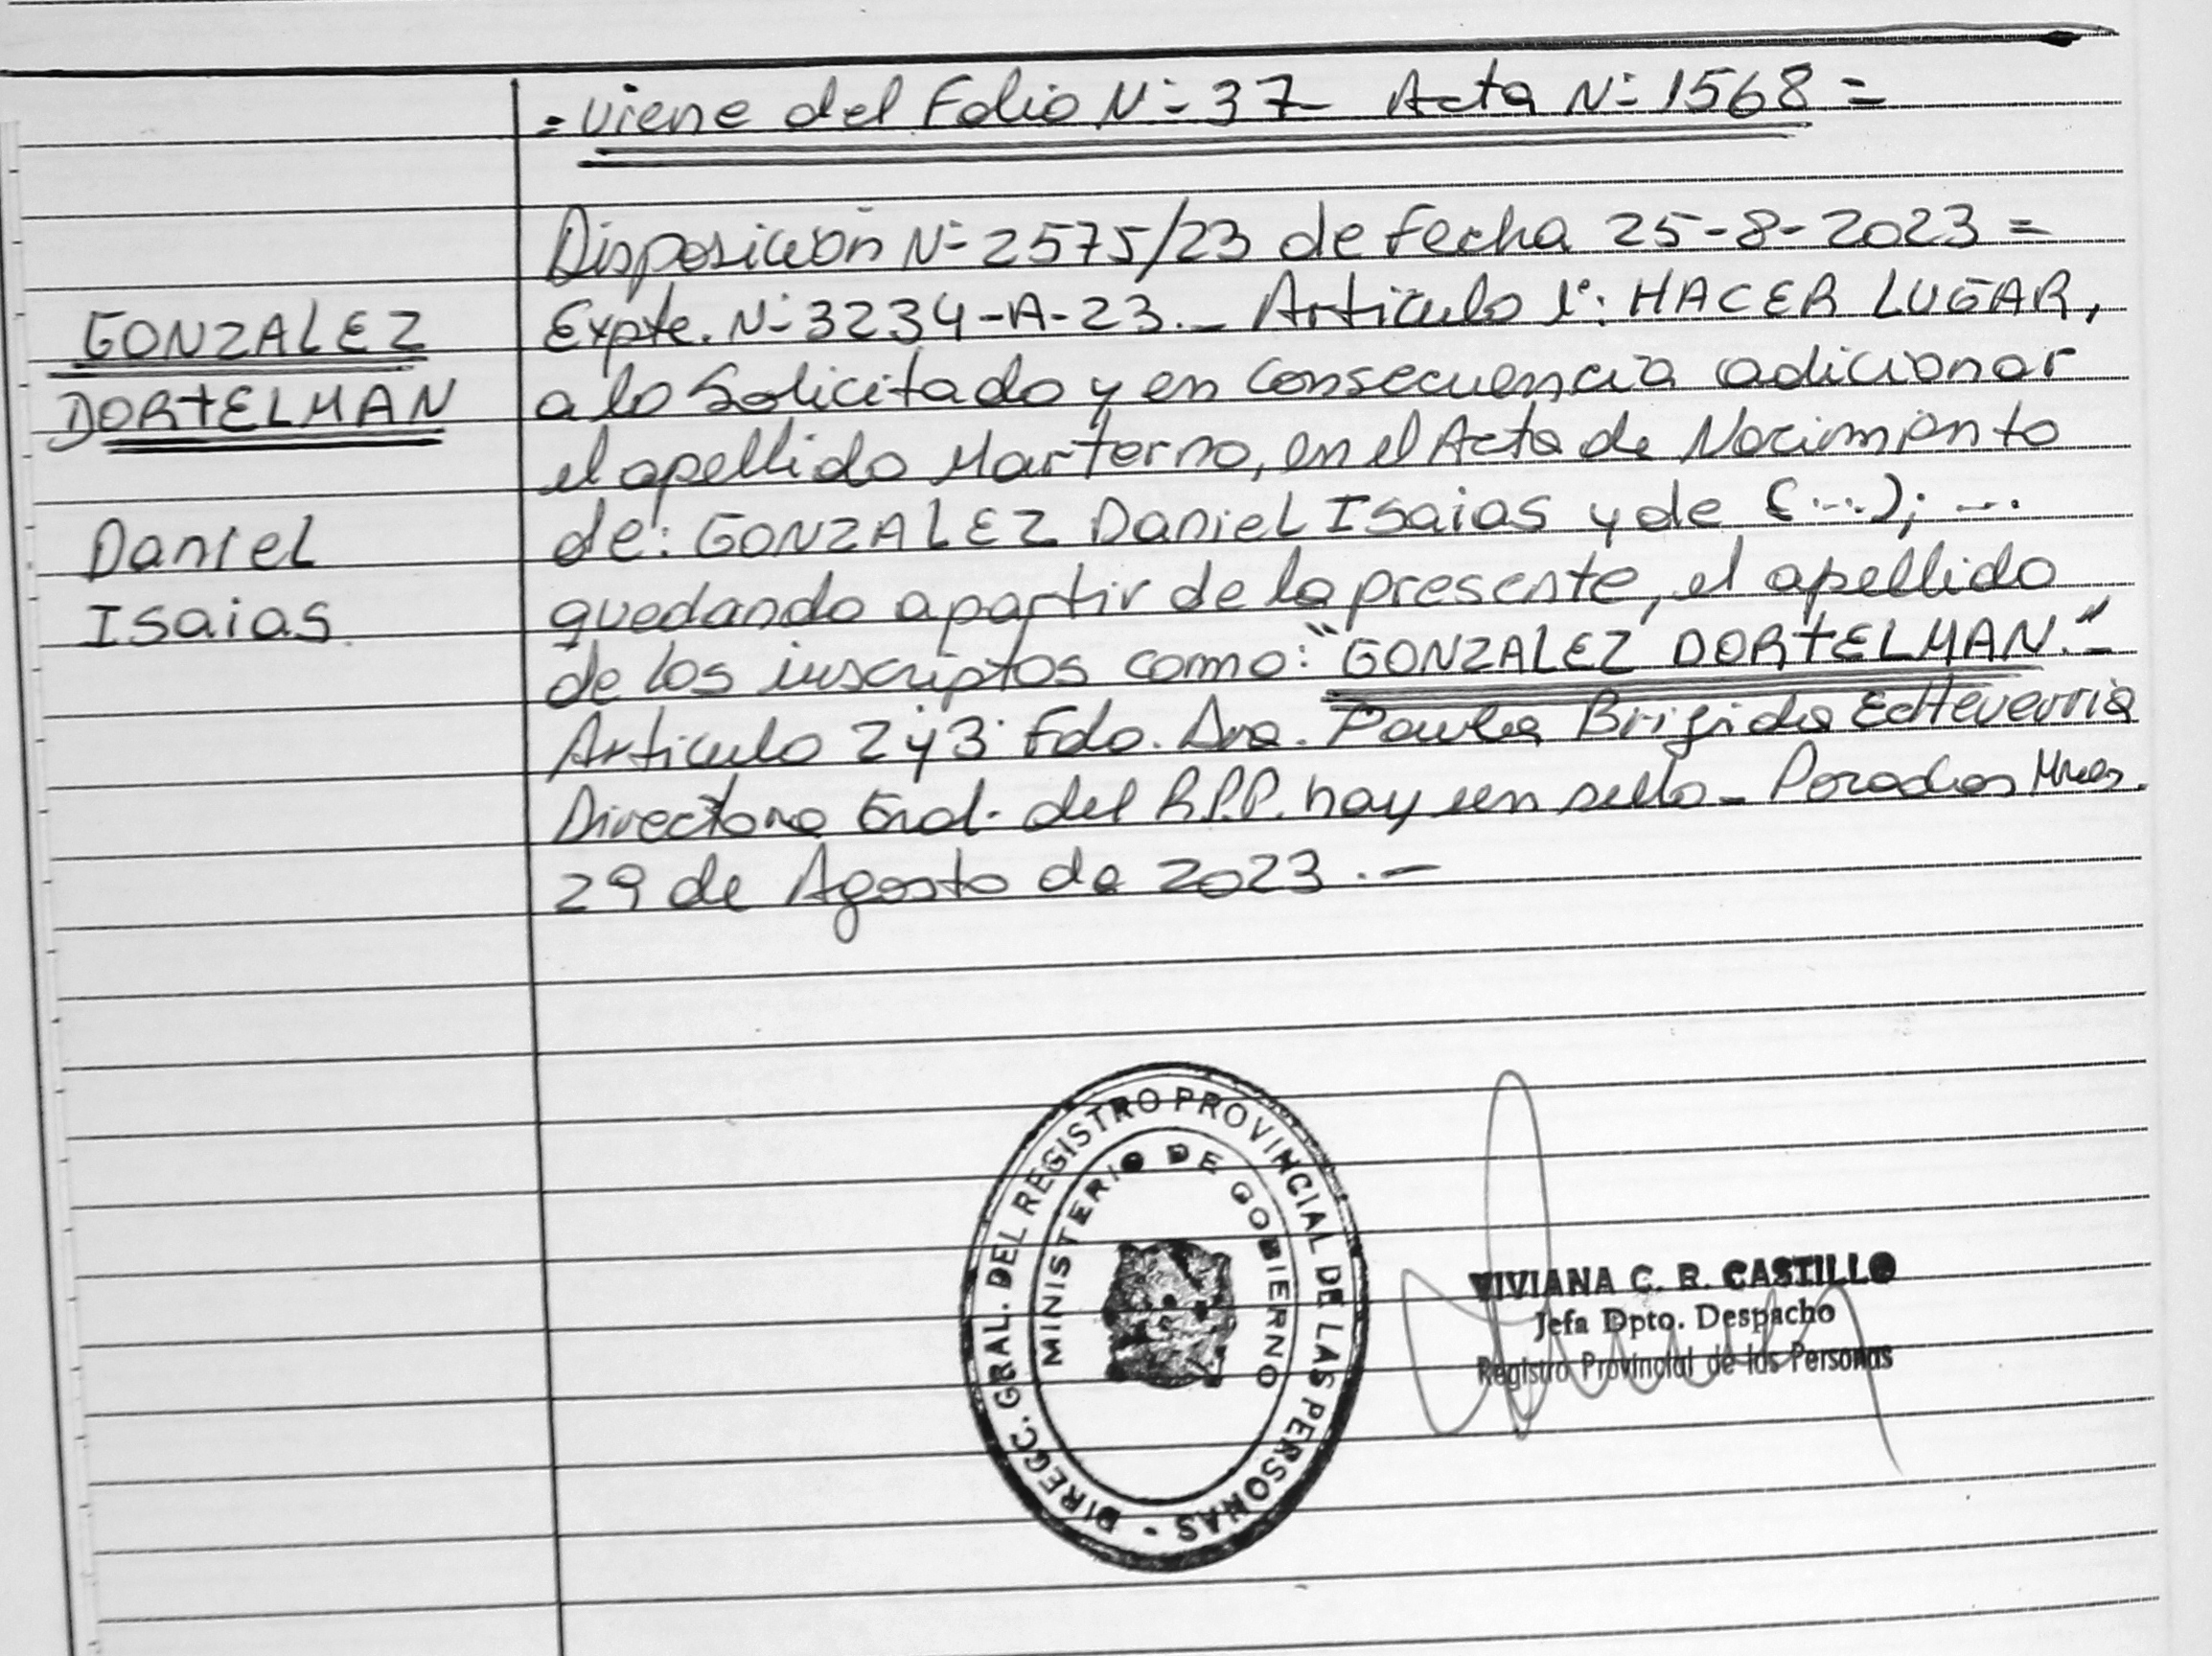 = Viene del Folio Nº 37 - Acta Nº 1568 =
Disposición Nº 2575/23 de fecha 25-8-2023 =
Expte. Nº 3234-A-23.- Artículo 1º: HACER LUGAR,
a lo Solicitado y en Consecuencia adicionar
el apellido Marterno, en el Acta de Nacimiento
de: GONZALEZ Daniel Isaias y de (...); ...
quedando a partir de la presente, el apellido
de los inscriptos como: "GONZALEZ DORTELMAN."-
Artículo 2 y 3 Fdo. Dra. Paula Brigida Echeverria
Directora Gral. del R.P.P. hay un sello - Posadas Mnes.
29 de Agosto de 2023.-
GONZALEZ
DORTELMAN
Daniel
Isaias
DIRECC. GRAL. DEL REGISTRO PROVINCIAL DE LAS PERSONAS -
MINISTERIO DE GOBIERNO
VIVIANA C. R. CASTILLO
Jefa Dpto. Despacho
Registro Provincial de las Personas